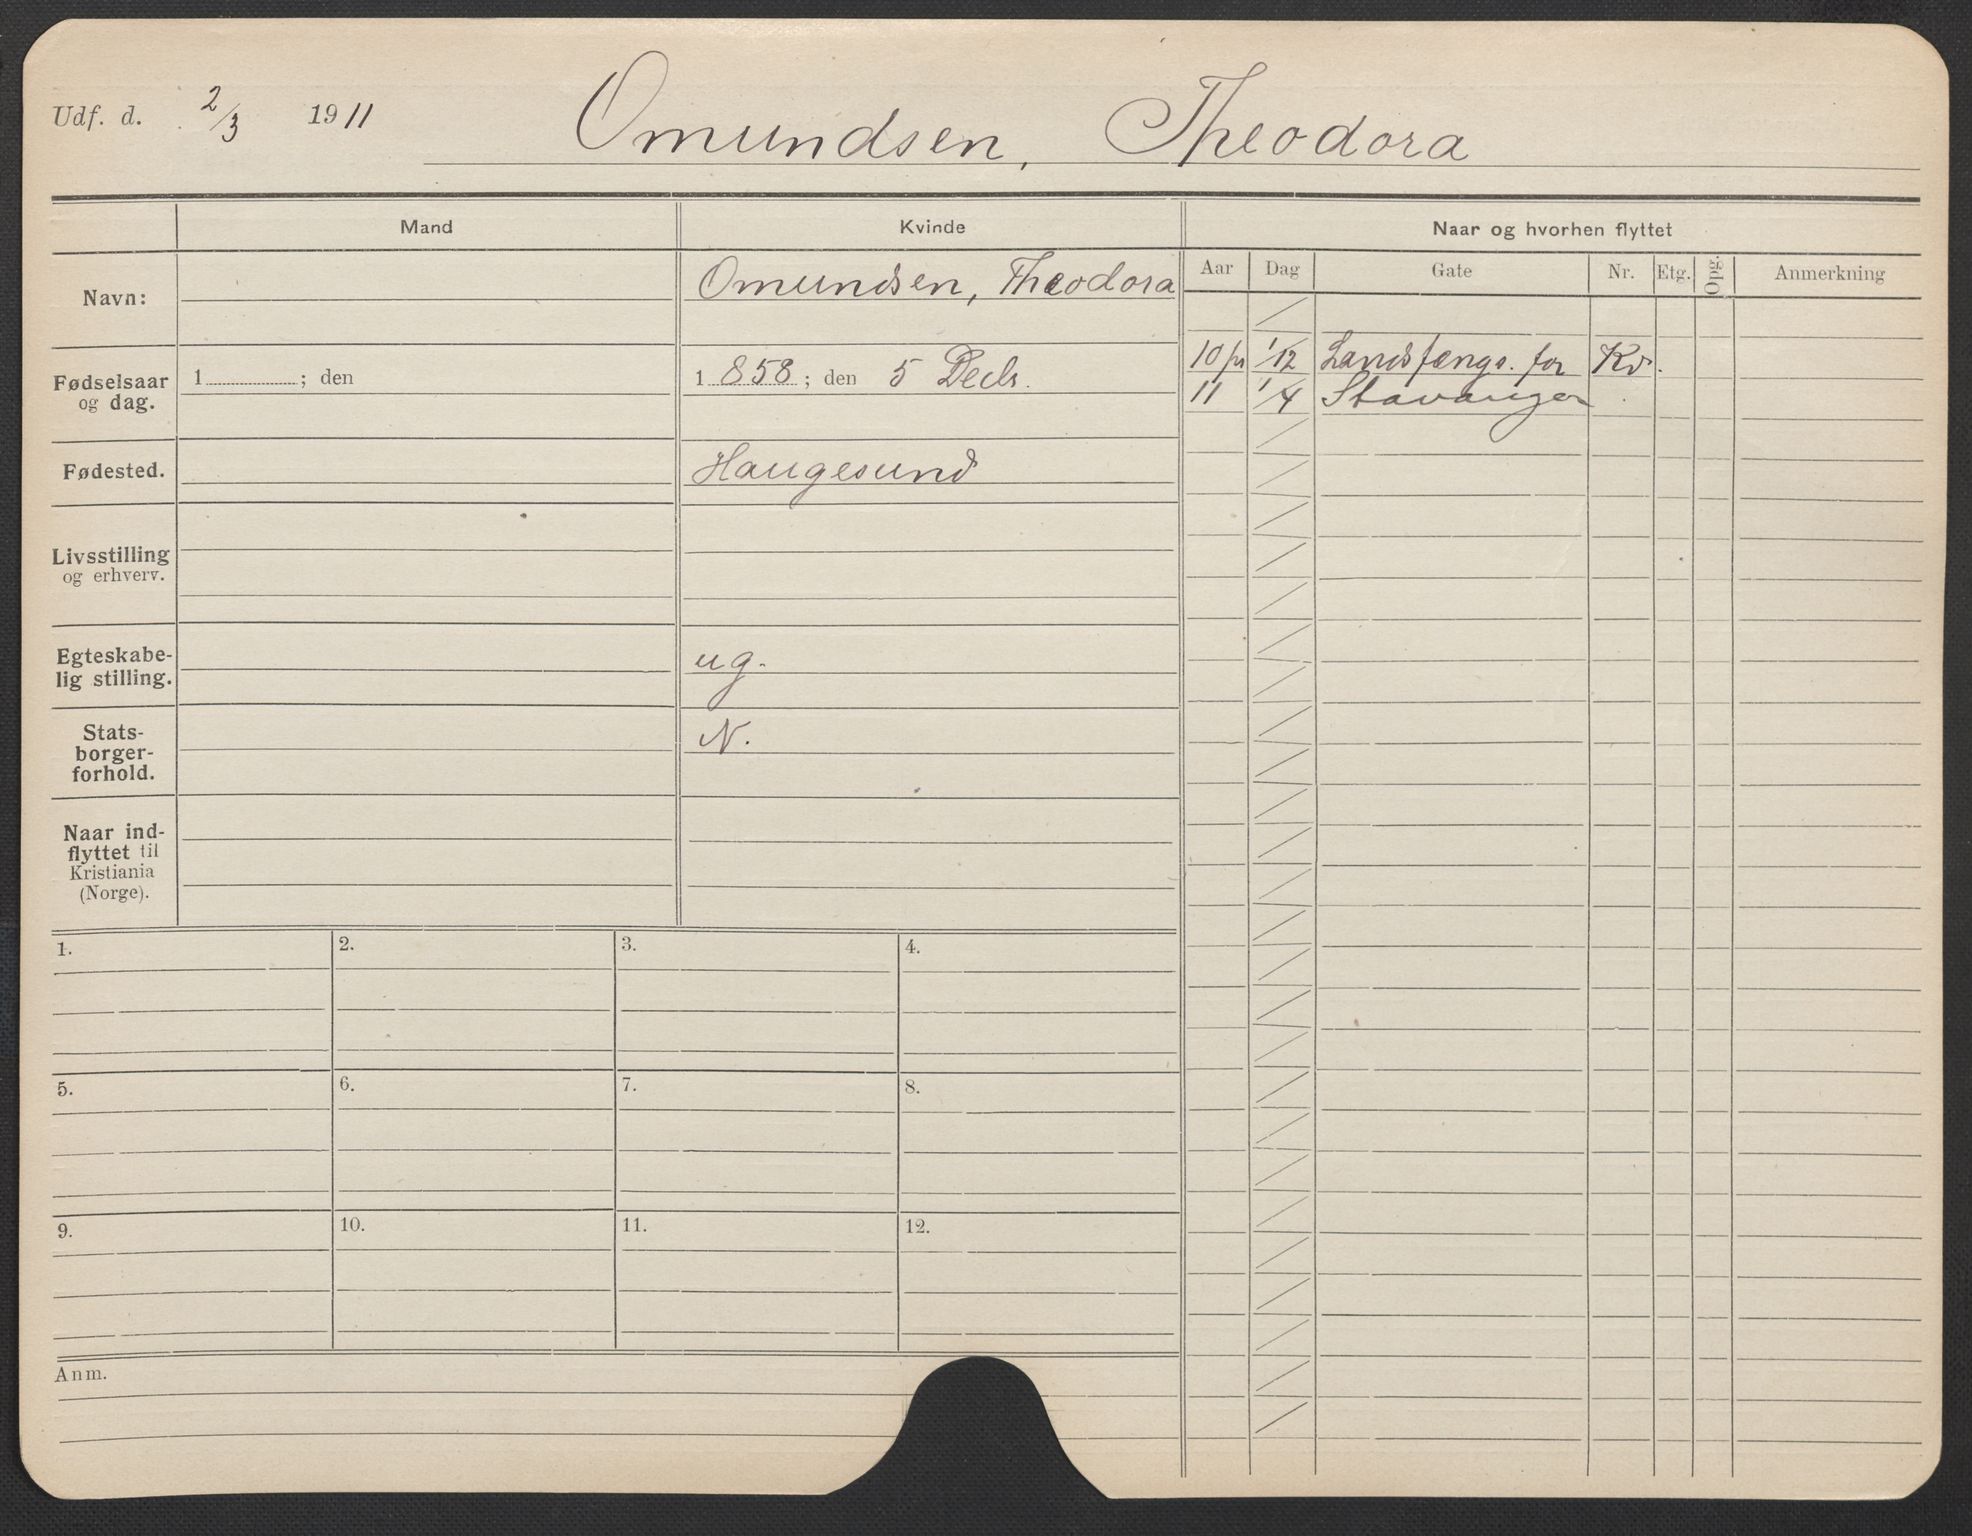 Udf. d. 2/3 1911 Omundsen, Theodora
Mand Kvinde Naar og hvorhen flyttet
Aar Dag Gate Nr. Etg. Opg. Anmerkning
Navn: Omundsen, Theodora
10 pr 1/12 Landsfængs. for Kv.
Fødselsaar og dag. 1 ; den 1858 ; den 5 Decbr.
11 1/4 Stavanger
Fødested. Haugesund
Livsstilling
og erhverv.
Egteskabe-
lig stilling. ug.
Stats-
borger-
forhold. N.
Naar ind-
flyttet til
Kristiania
(Norge).
1. 2. 3. 4.
5. 6. 7. 8.
9. 10. 11. 12.
Anm.